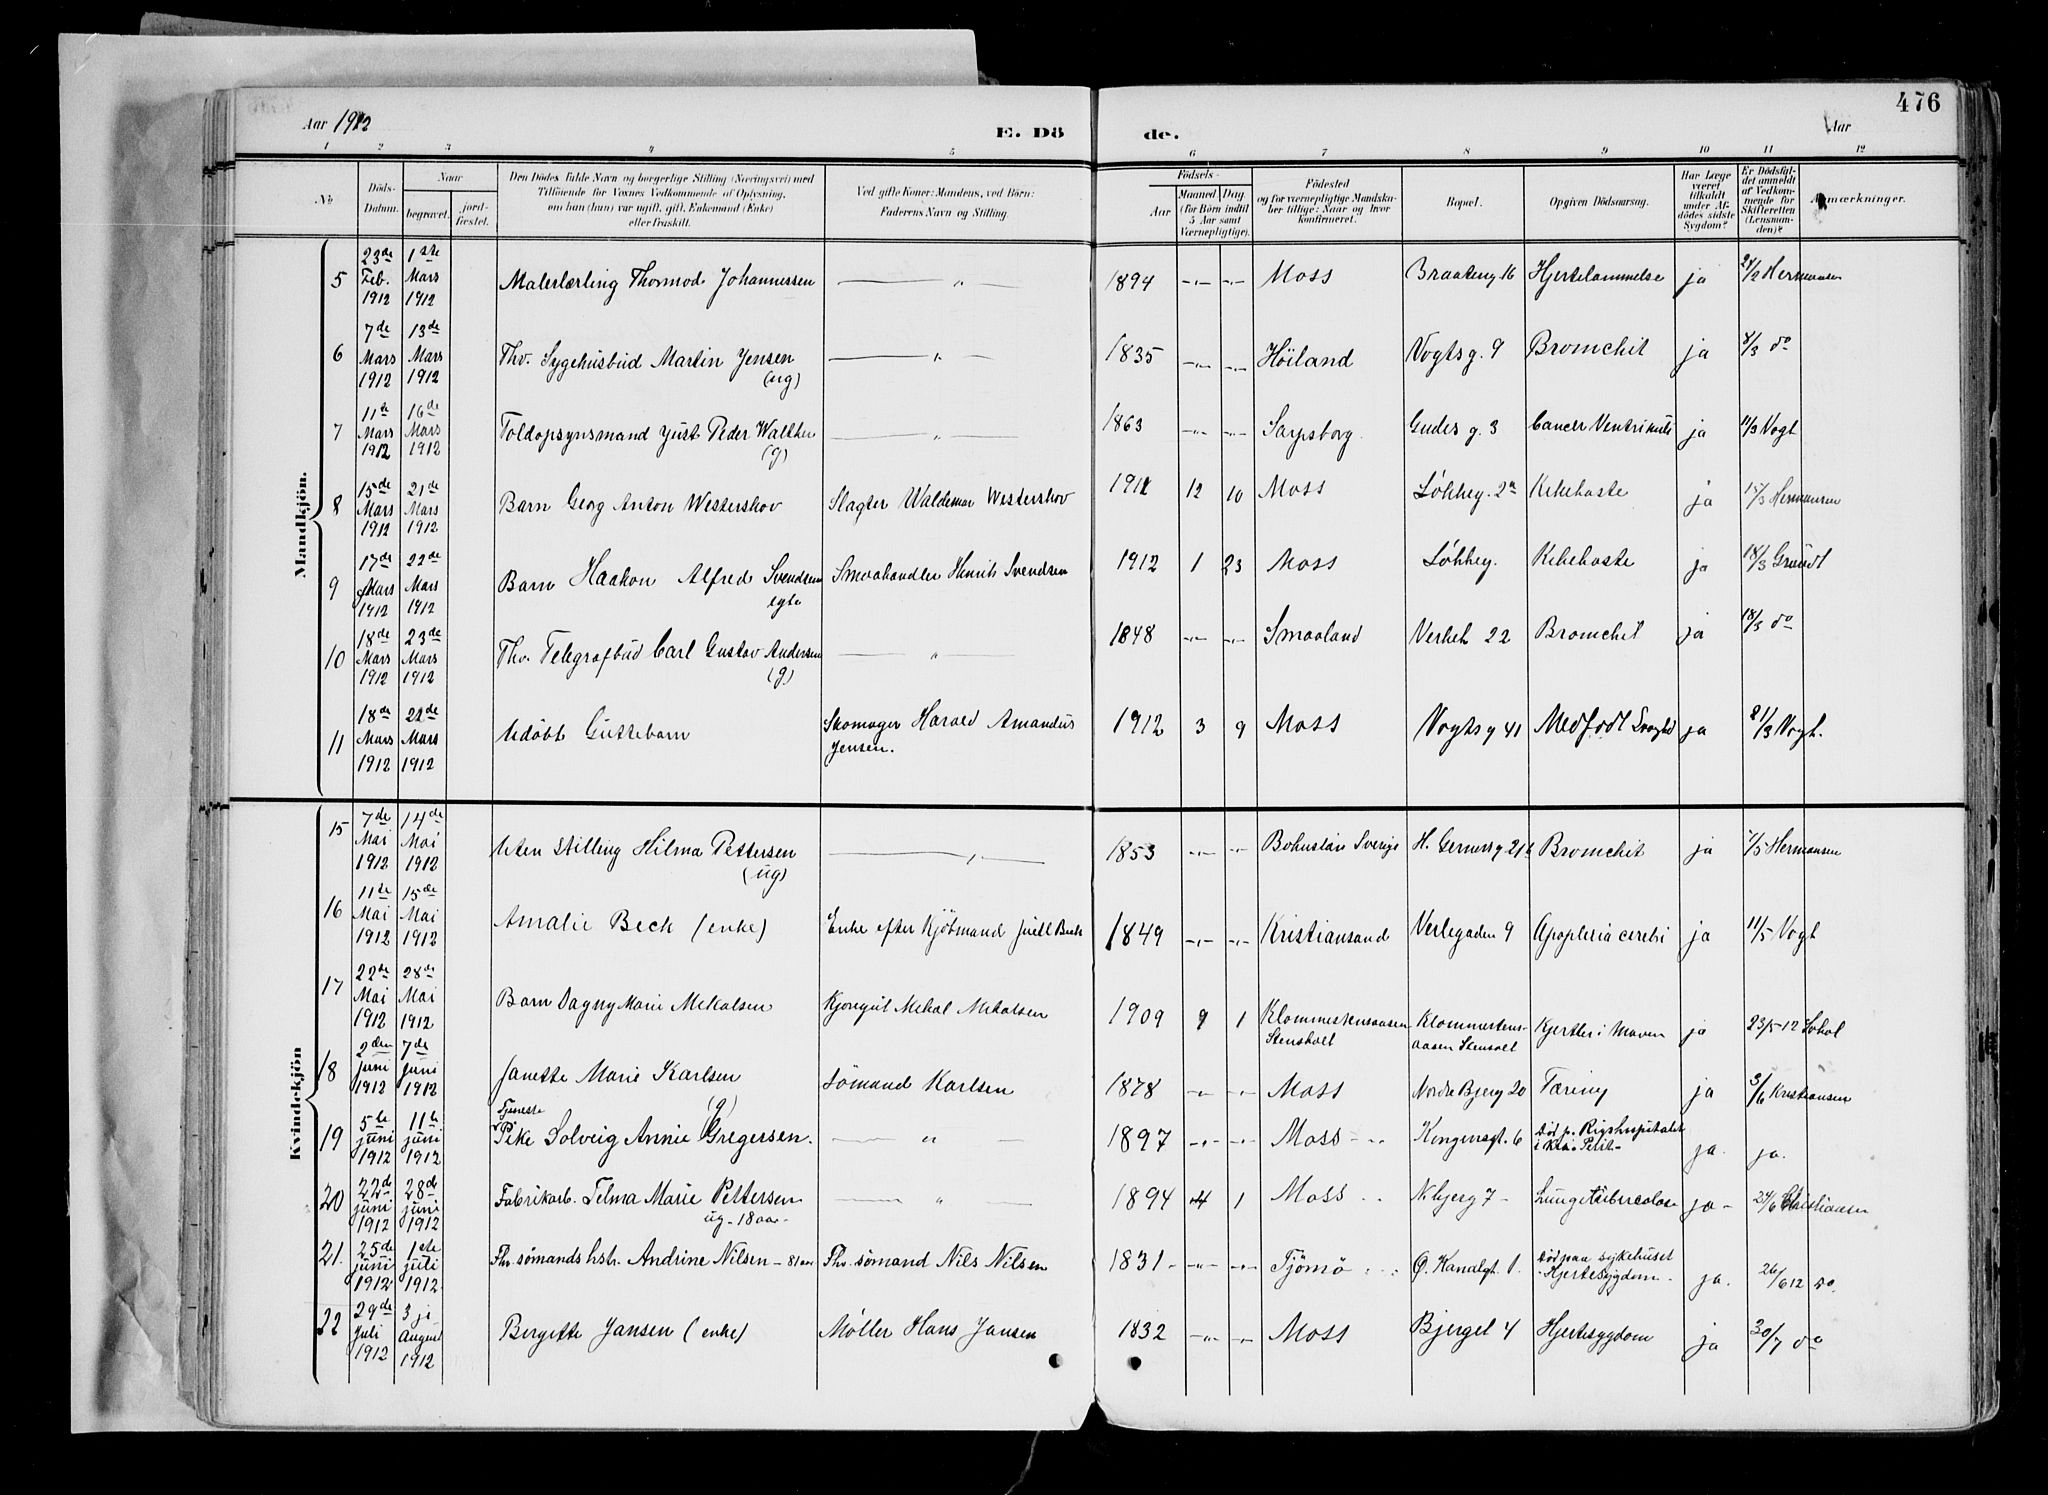 476
Aar 1912
E. Dö
de.
Aar
1 2 3 4 5 6 7 8 9 10 11 12
No
Döds-Datum.
Naar
begravet.
jord-fæstet.
Den Dödes fulde Navn og borgerlige Stilling (Næringsvei) med
Tilföiende for Voxnes Vedkommende af Oplysning,
om han (hun) var ugift, gift, Enkemand (Enke)
eller fraskilt.
Ved gifte Koner: Mandens, ved Börn:
Faderens Navn og Stilling.
Födsels-
Aar
Maaned
Dag
(for Börn indtil
5 Aar samt
Værnepligtige).
Födested
og for værnepligtige Mandska-
ber tillige: Naar og hvor
konfirmeret.
Bopæl.
Opgiven Dödsaarsag.
Har Læge
været
tilkaldt
under Af-
dödes sidste
Sygdom?
Er Dödsfal-
det anmeldt
af Vedkom-
mende for
Skifteretten
(Lensman-
den)?
Anmærkninger.
Mandkjön.
5 23de Feb. 1912 1ste Mars 1912 Malerlærling Thormod Johannessen — " — 1894 -"- -"- Moss Braateng 16 Hjertelammelse ja 24/2 Hermansen
6 7de Mars 1912 13de Mars 1912 Fhv. Sygehusbud Martin Jensen — " — 1835 -"- -"- Höiland Vogtsg. 9 Bronchit ja 8/3 do
(ug)
7 11te Mars 1912 16de Mars 1912 Toldopsynsmand Just Peder Walther — " — 1863 -"- -"- Sarpsborg Gudes g. 3 Cancer Ventrikuli ja 11/3 Vogt
(g)
8 15de Mars 1912 21de Mars 1912 Barn Georg Anton Westerskov Slagter Waldemar Westerskov 1911 12 10 Moss Løkkeg. 2a Kikehoste ja 15/3 Hermansen
9 17de Mars 1912 22de Mars 1912 Barn Haakon Alfred Svendsen Smaahandler Henrik Svendsen 1912 1 23 Moss Løkkeg. Kikehoste ja 18/3 Grundt
egte
10 18de Mars 1912 23de Mars 1912 Fhv. Telegrafbud Carl Gustav Andersen — " — 1848 -"- -"- Smaaland Verket 22 Bronchit ja 18/3 do
(g)
11 18de Mars 1912 22de Mars 1912 Udöbt Guttebarn Skomager Harald Amandus 1912 3 9 Moss Vogtsg 41 Medfødt Svaghd ja 21/3 Vogt.
Jensen.
Kvindekjön
15 7de Mai 1912 14de Mai 1912 Uten stilling Hilma Pettersen — " — 1853 -"- -"- Bohuslän Sverige H. Gernersg 21b Bronchit ja 7/5 Hermansen
(ug)
16 11te Mai 1912 15de Mai 1912 Amalie Beck (enke) Enke efter Kjöbmand Beck 1849 -"- -"- Kristiansand Verlegaden 9 Apoplexia cerebri ja 11/5 Vogt
17 22de Mai 1912 28de Mai 1912 Barn Dagny Marie Mikalsen Mikal Mikalsen 1909 9 1 Stensholt Klommestens-
aasen Stensolt Kjertler i Maven ja 23/5-12
18 2den juni 1912 7de juni 1912 Janette Marie Karlsen Sömand Karlsen 1878 -"- -"- Moss Nordre Bjerg 20 Tæring ja 3/6 Kristiansen
(g)
19 5te juni 1912 11te juni 1912 Tjeneste
Pike Solveig Annie Gregersen. — " — 1897 -"- -"- Moss Kongensgt. 6 Død p. Rigshospitalet
i Kra. Perit- ja. ja.
20 22de juni 1912 28de juni 1912 Fabrikarb. Telma Marie Pettersen — " — 1894 4 1 Moss Kbjerg 7 - Lungetuberculose ja - 24/6 Christiansen
ug - 18 aar -
21. 25de juni 1912 1ste juli 1912 Fhv. sömands hstr. Andrine Nilsen - 81 aar Fhv. sömand Nils Nilsen 1831 - -"- -"- Tjömö Ø. Kanalgt. 1. Död paa sykehuset
- Hjertesygdom - ja. 26/6 12 do.
22 29de Juli 1912 3 je August 1912 Bergitte Jansen (enke) Møller Hans Jansen 1832 -"- -"- Moss Bjerget 4 Hjertesygdom ja 30/7 do